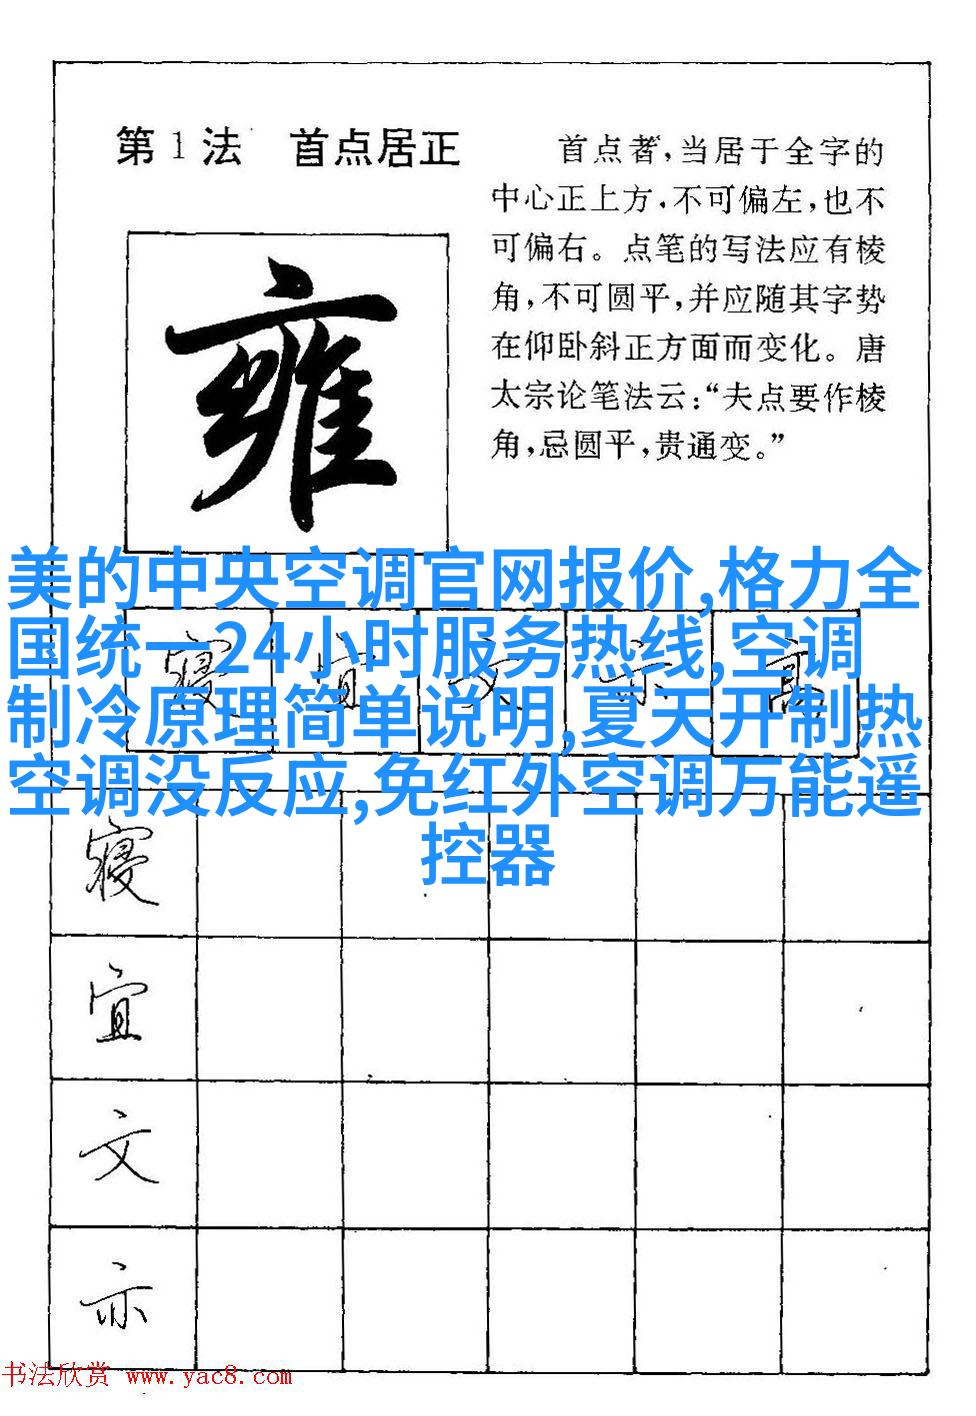 第1法 首点居正
首点者,当居于全字的
中心正上方,不可偏左,也不
可偏右。点笔的写法应有棱
角,不可圆平,并应随其字势
在仰卧斜正方面而变化。唐
太宗论笔法云:“夫点要作棱
角,忌圆平,贵通变。”
雍
美的中央空调官网报价,格力全
国统一24小时服务热线,空调
制冷原理简单说明,夏天开制热
空调没反应,免红外空调万能遥
控器
寝 宜 文 亦
寝
宜
文
亦
书法欣赏 www.yac8.com